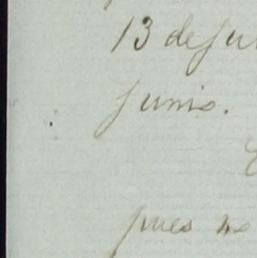 13 de ju
junio.
pues no